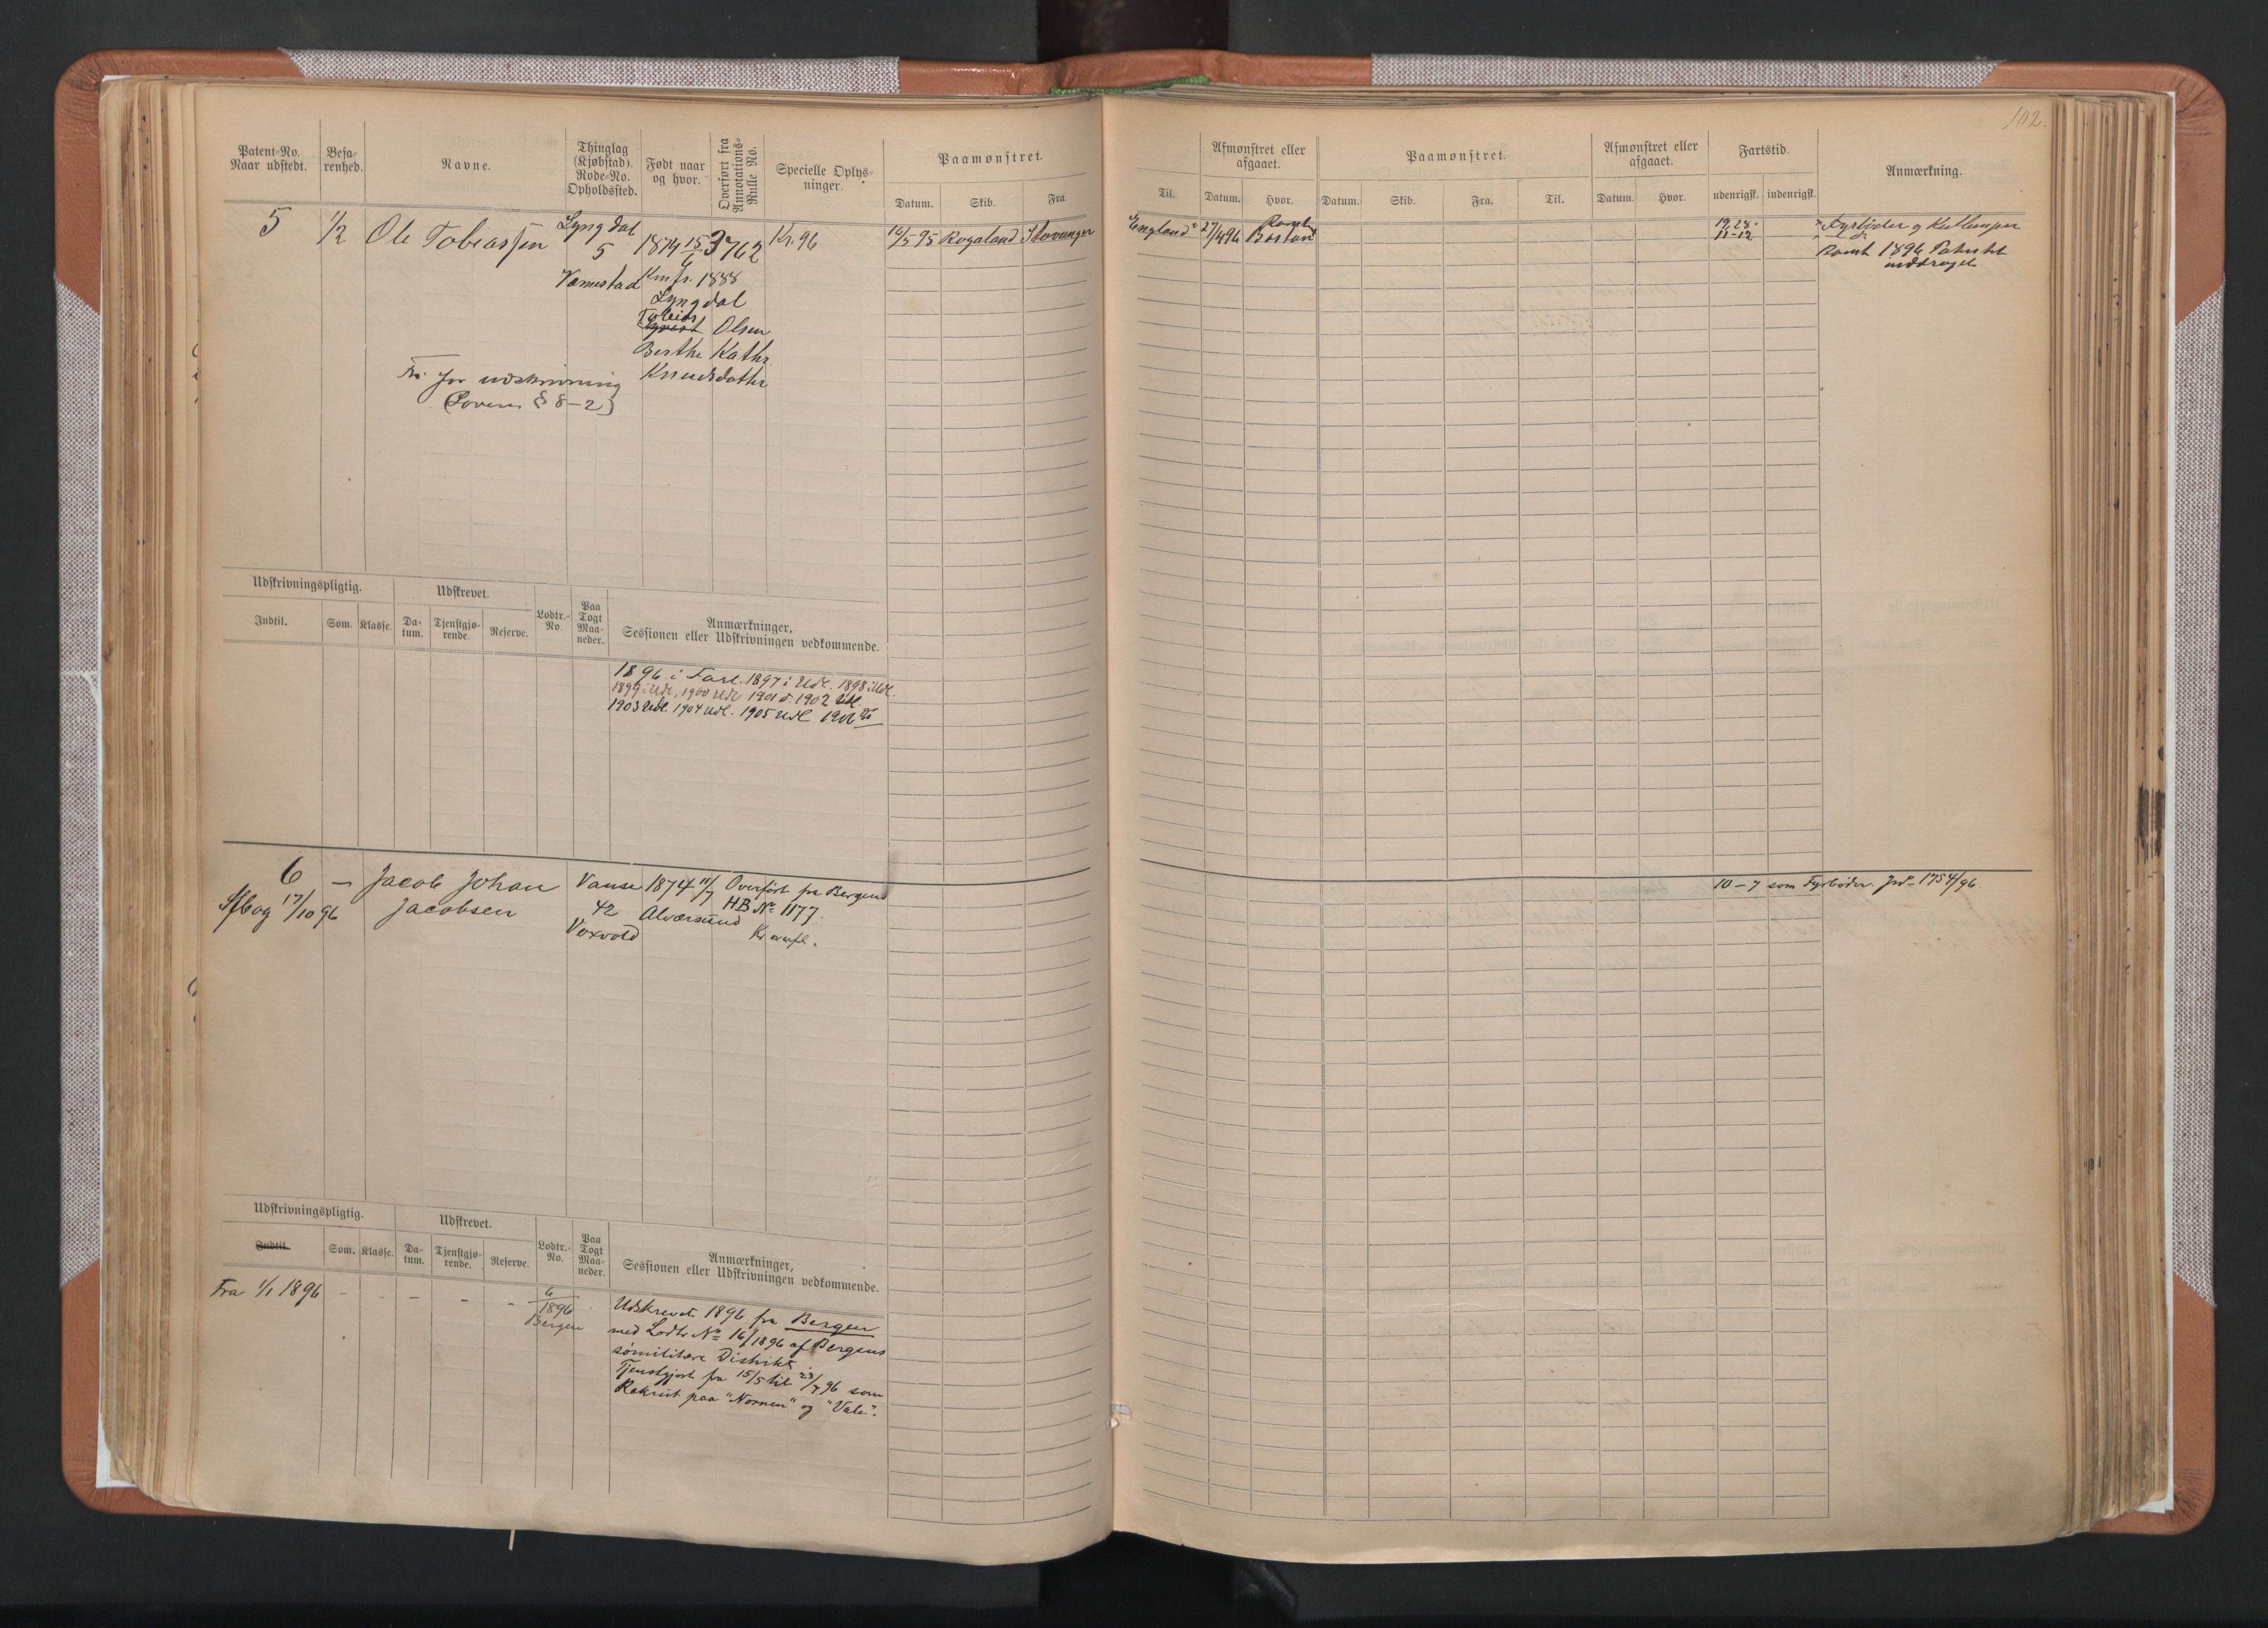 102.
Patent-No. Naar udstedt.
Befa-renhed.
Navne.
Thinglag (Kjøbstad). Rode-No. Opholdssted.
Født naar og hvor.
Overført fra Annotations-Rulle No.
Specielle Oplys-ninger.
Paamønstret.
Datum. Skib. Fra.
Til.
Afmønstret eller afgaaet.
Datum. Hvor.
Paamønstret.
Datum. Skib. Fra. Til.
Afmønstret eller afgaaet.
Datum. Hvor.
Fartstid.
udenrigsk. indenrigsk.
Anmærkning.
5 1/2 Ole Tobiassen Lyngdal 1874 15/6 3762 Kr. 96 Rogaland Stavanger England 27/4 96 Boston
5
Vemestad Kmfr. 1888
Lyngdal
Tobias
Olsen
Berthe Kathr.
Knudsdatter
Fri for udskrivning
(Lovens § 8-2)
19.28.
11-12
Fyrbøder og Kullemper
Rømt 1896 Patentet
inddraget
Udskrivningspligtig.
Indtil. Som. Klasse.
Udskrevet.
Da-tum. Tjenstgjø-rende. Reserve.
Lodtr.-No.
Paa Togt Maa-neder.
Anmærkninger,
Sessionen eller Udskrivningen vedkommende.
1896 i Fart. 1897 i Udl. 1898 i Udl.
1899 i Udl, 1900 Udl 1901 d. 1902 Udl.
1903 Udl. 1904 Udl. 1905 Udl 1906
6 — Jacob Johan Vanse 1874 11/7 Overført fra Bergens
17/10 96 Jacobsen 42 Alversund HB No 1177.
10-7 som Fyrbøder. 1754/96
Udskrivningspligtig.
Indtil. Som. Klasse.
Udskrevet.
Da-tum. Tjenstgjø-rende. Reserve.
Lodtr.-No.
Paa Togt Maa-neder.
Anmærkninger,
Sessionen eller Udskrivningen vedkommende.
Fra 1/1 1896 - - - - -
6
1896
Bergen
Udskrevet 1896 fra Bergen
med Lodtr No 16/1896 af Bergens
sømilitære Distrikt
Tjenstgjort fra 15/5 til 23/7 96 som
Rekrut paa "Nornen" og "Vale".